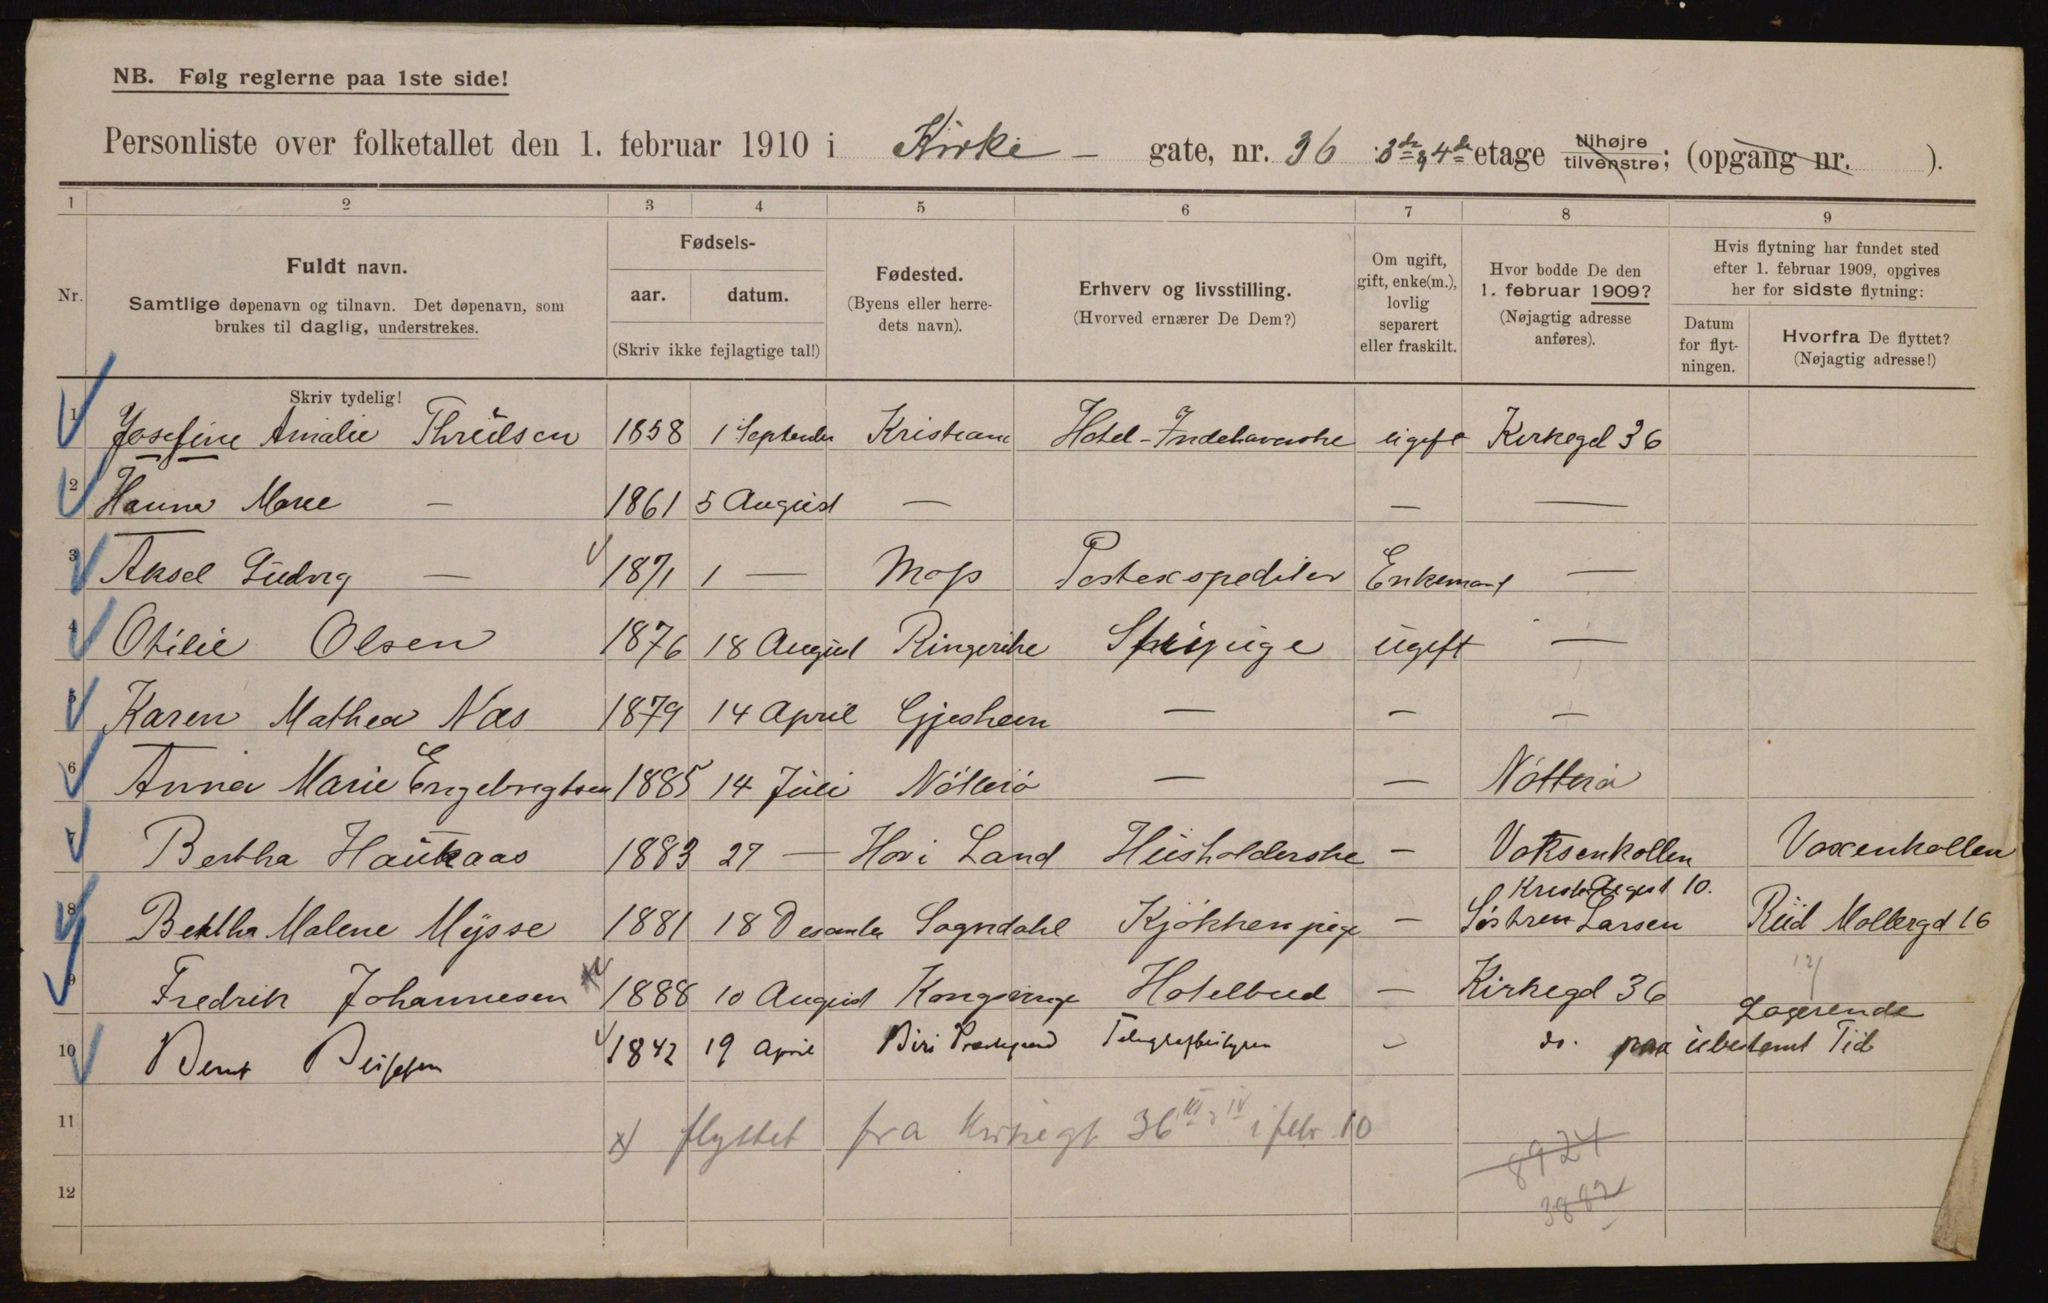 NB. Følg reglerne paa 1ste side!
Personliste over folketallet den 1. februar 1910 i Kirke – gate, nr. 36 3de & 4de etage tilhøjre tilvenstre; (opgang nr. ).
1 2 3 4 5 6 7 8 9
Nr.
Fuldt navn.
Samtlige døpenavn og tilnavn. Det døpenavn, som
brukes til daglig, understrekes.
Fødsels-
aar. datum.
(Skriv ikke fejlagtige tal!)
Fødested.
(Byens eller herre-
dets navn).
Erhverv og livsstilling.
(Hvorved ernærer De Dem?)
Om ugift,
gift, enke(m.),
lovlig
separert
eller fraskilt.
Hvor bodde De den
1. februar 1909?
(Nøjagtig adresse
anføres).
Hvis flytning har fundet sted
efter 1. februar 1909, opgives
her for sidste flytning:
Datum
for flyt-
ningen.
Hvorfra De flyttet?
(Nøjagtig adresse!)
Skriv tydelig!
1 Josefine Amalie 1858 1 September Hotel-Indehaverske ugift Kirkegd 36
2 Hanna Marie – 1861 5 August – – –
3 Aksel Ludvig – 1871 1 – Moss Postexspeditør Enkemand –
4 Otilie Olsen 1876 18 August Ringerike ugift –
5 Karen Mathea Næs 1879 14 April – – –
6 Anna Marie Engebrigtsen 1885 14 Juli Nötterö – – Nötterö
7 Bertha Haukaas 1883 27 – Hov i Land Husholderske – Voksenkollen Voxenkollen
8 Bertha Malene Mysse 1881 18 Desember Sogndahl Kjökkenpige – Söstren Larsen 10. Rüd Mollergd 16
9 Fredrik Johannesen 1888 10 August Kongsvinge Hotelbud – Kirkegd 36
Logerende
10 Bernt 1842 19 April Biri – do. paa ubestemt Tid
11 x) flyttet fra Kirkegt 36 III & IV i febr. 10
8924
12